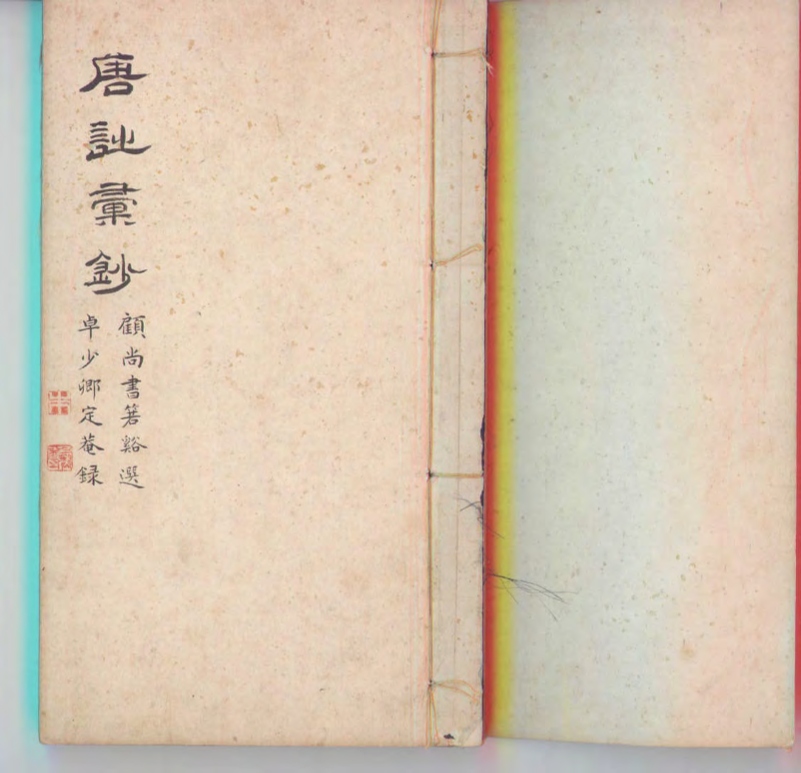 唐詩彙鈔
顧尚書箬谿選
卓少卿定菴録